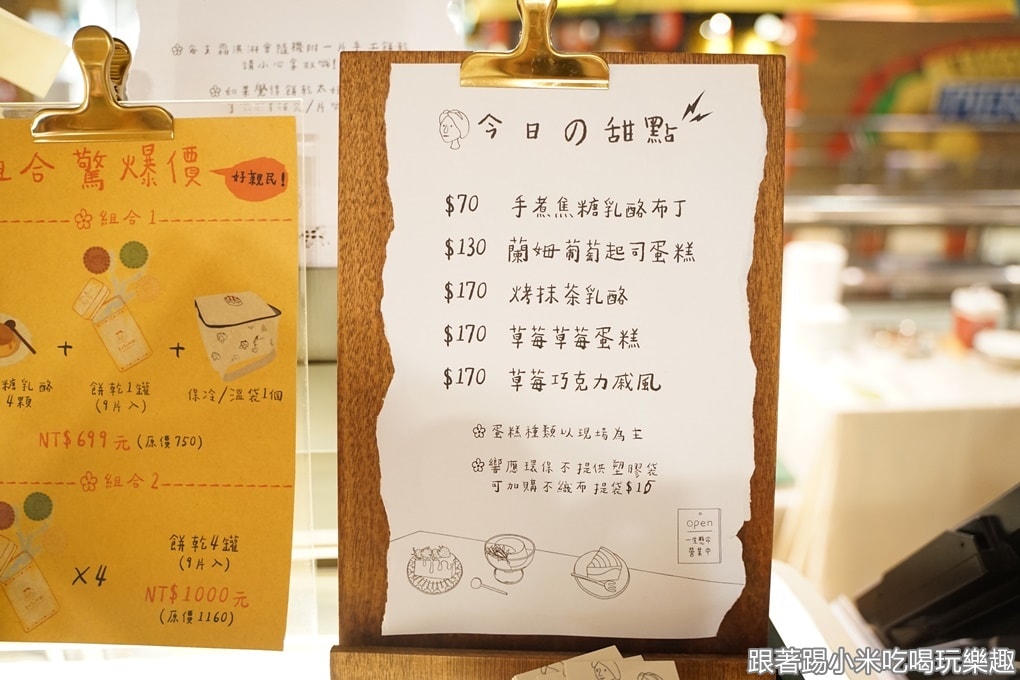 每支霜淇淋會隨機附一片手工餅乾
請小心拿取唷!
如果覺得餅乾太
組合驚爆價
好親民!
組合1
+
+
糖乳酪
4顆
餅乾1罐
(9片入)
保冷/溫袋1個
NT$699元(原價750)
組合2
餅乾4罐
(9片入)
X4
NT$1000元
(原價1160)
今日の甜點
$70 手煮焦糖乳酪布丁
$130 蘭姆葡萄起司蛋糕
$170 烤抹茶乳酪
$170 草莓草莓蛋糕
$170 草莓巧克力戚風
蛋糕種類以現場為主
響應環保不提供塑膠袋
可加購不織布提袋$15
open
營業中
跟著踢小米吃喝玩樂趣